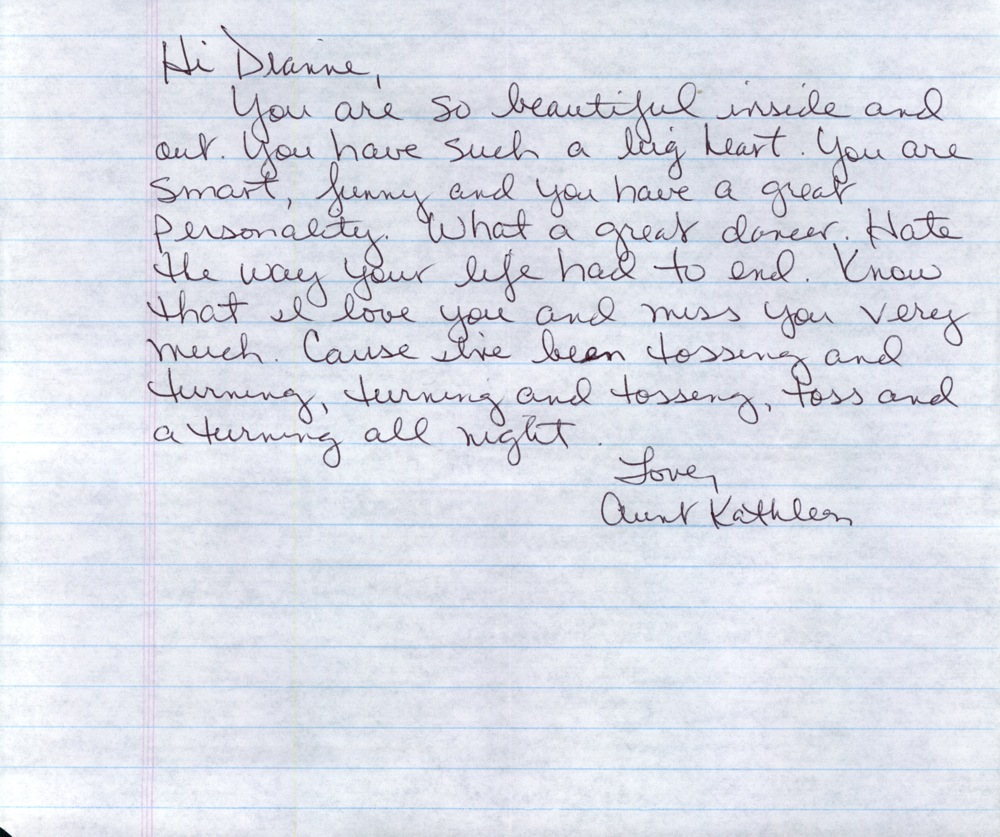 Hi Dianne,
You are so beautiful inside and
out. You have such a big heart. You are
smart, funny and you have a great
personality. What a great dancer. Hate
the way your life had to end. Know
that I love you and miss you very
much. Cause I've been tossing and
turning, turning and tossing, toss and
a turning all night.
Love,
Aunt Kathleen